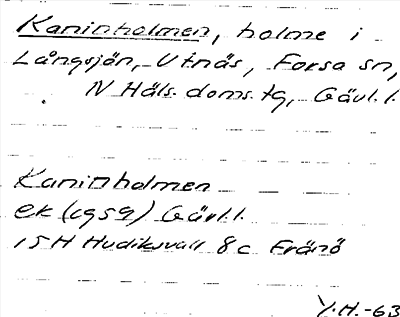 Kaninholmen, holme i
Långsjön, Utnäs, Forsa sn,
N Häls. doms. tg, Gävl. l.
Kaninholmen
ek (1959) Gävl. l.
15H Hudiksvall 8c Fränö
Y.H.-63